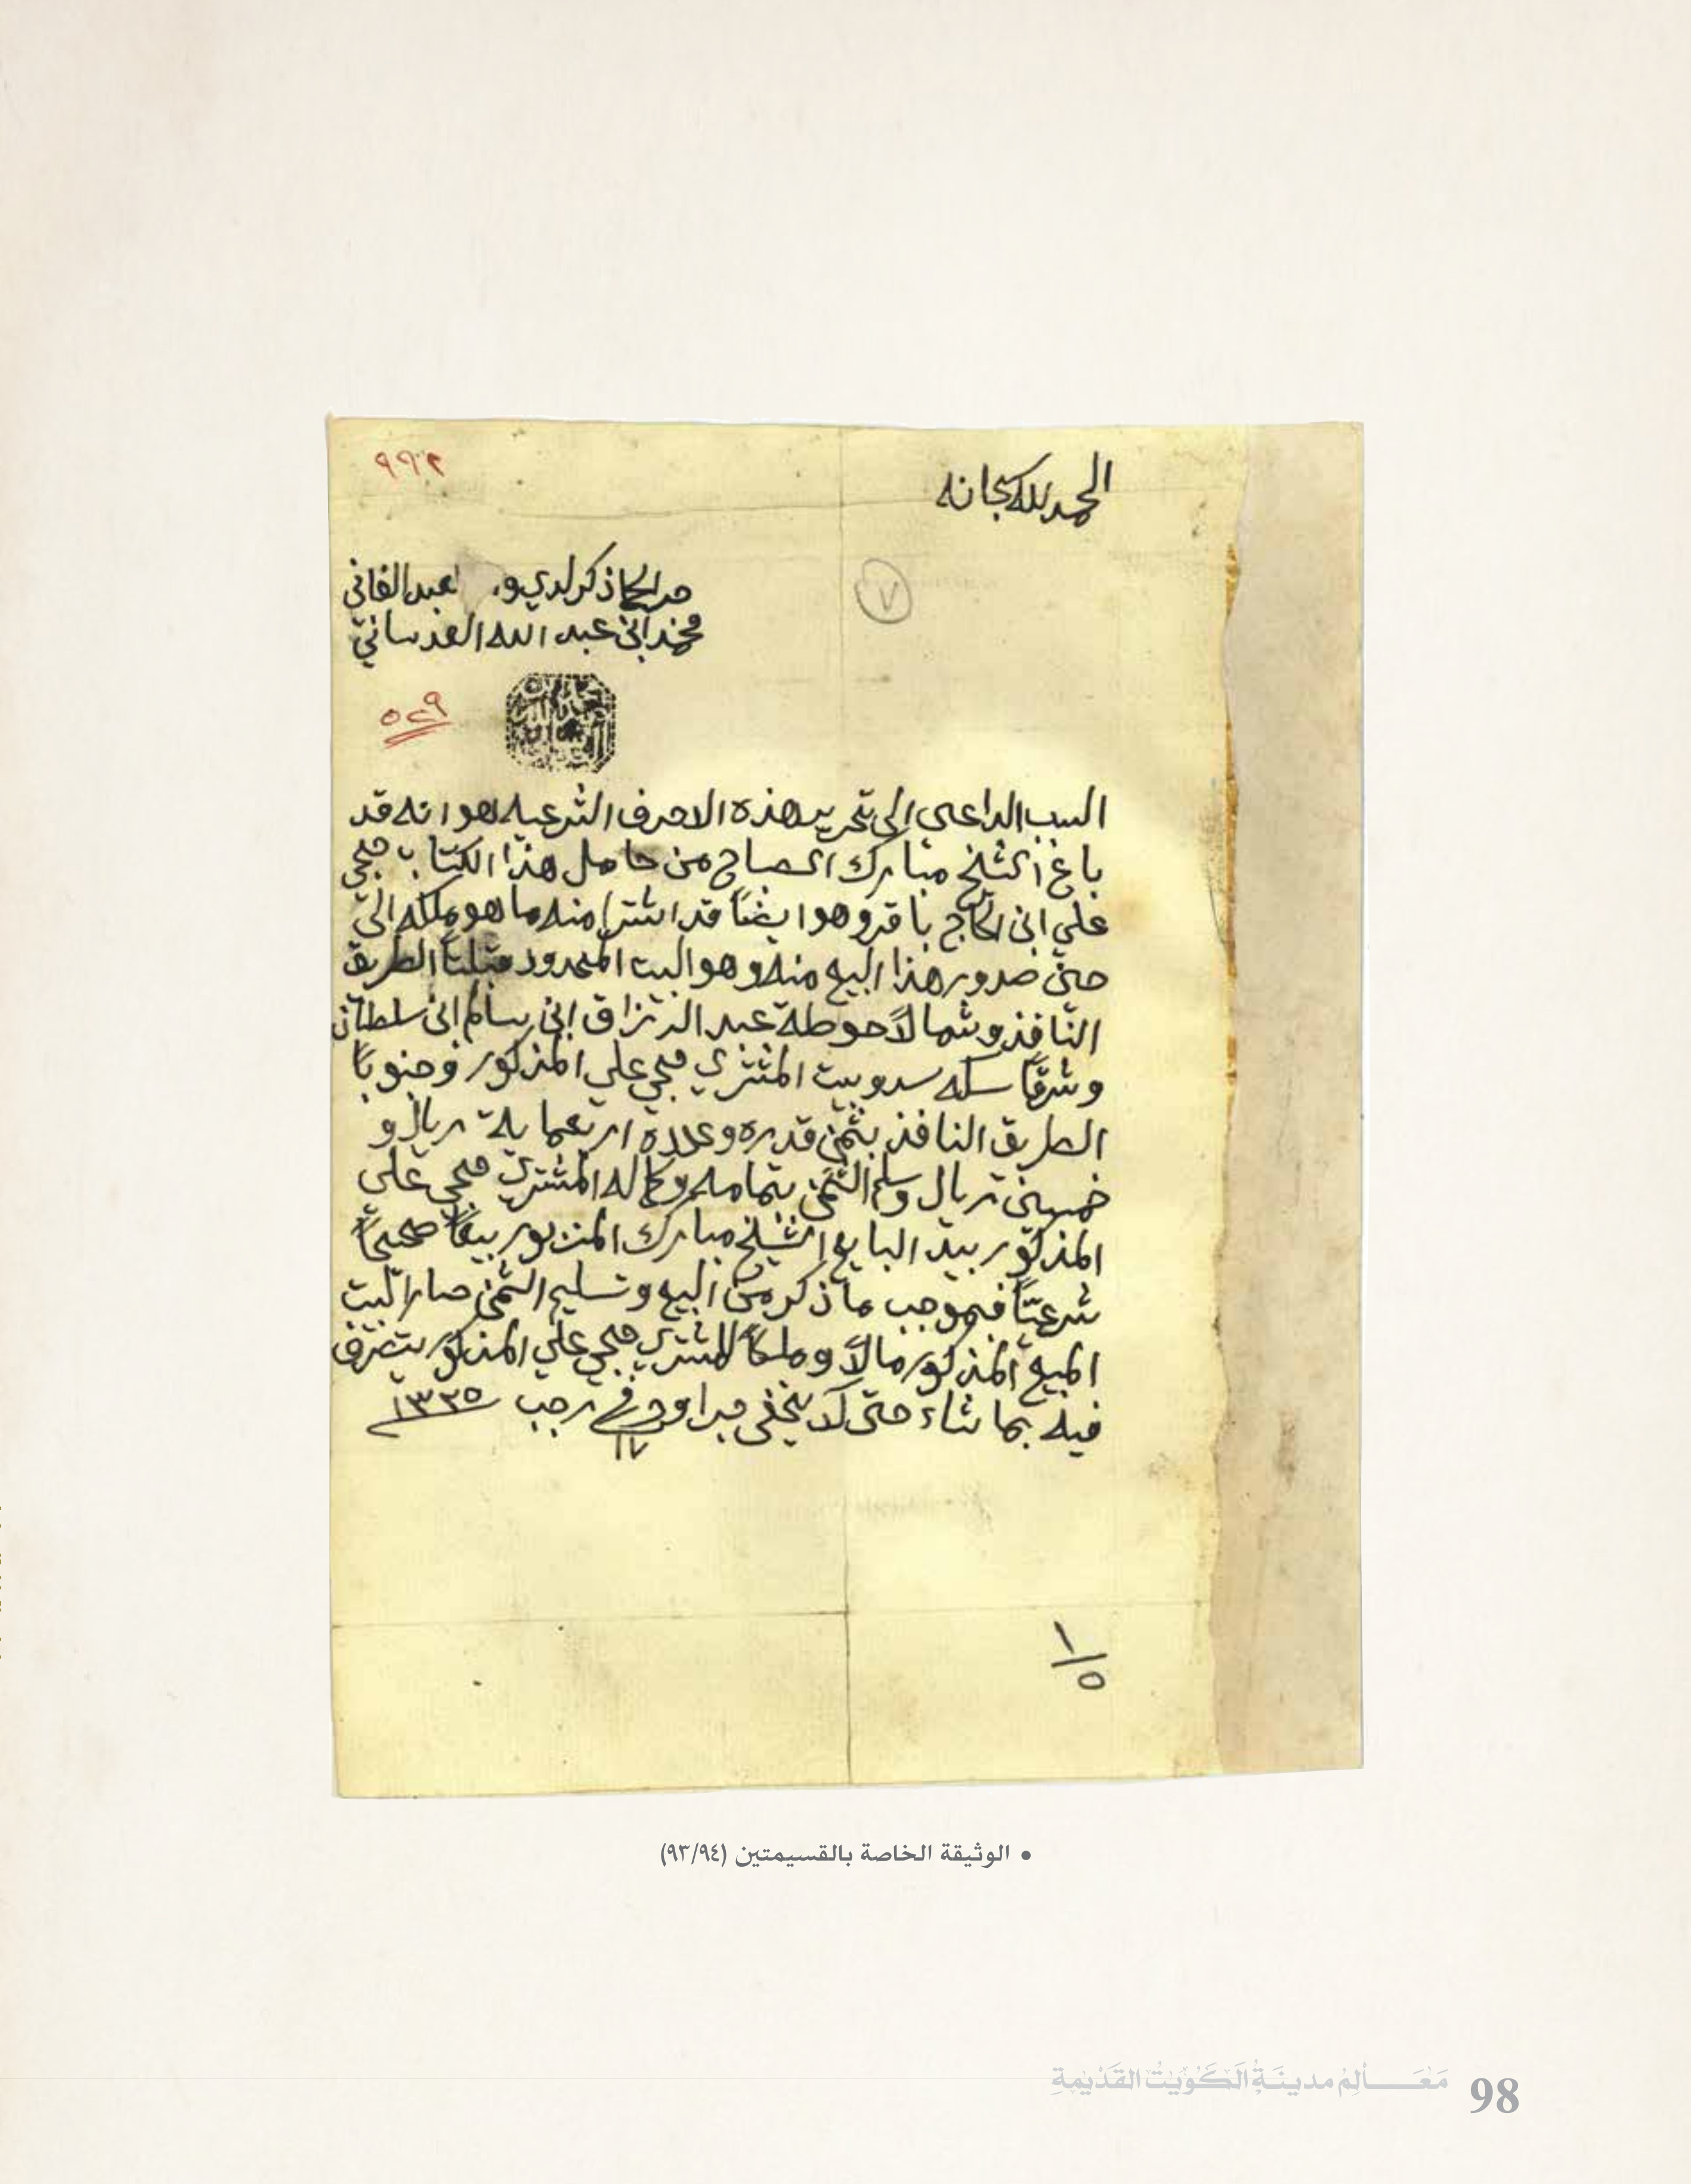 الحمد لله سبحانه
٩٩٢
٧
جرا لحكا ذكر لدي و، لعبد الفاني
محمد ابن عبد الله العدساني
٥٢٩
السبب الداعي الى تحرير هذه الاحرف الشرعيه هو انه قد
باع الشيخ مبارك الصباح من حامل هذا الكتاب حجي
علي ابن الحاج باقر وهو ايضاً قد اشترا منه ما هو ملكه الى
حين صدور هذا البيع منه وهو البيت المحدود قبلتاً الطريق
النافذ وشمالاً حوطة عبد الرزاق ابن سالم ابن سلطان
وشرقاً سكه سد وبيت المشتري حجي علي المذكور وجنوباً
الطريق النافذ بثمن قدره وعدده اربعماية ريال و
خمسين ريال وسلم الثمن بتمامه وكماله المشتري حجي علي
المذكور بيد البايع الشيخ مبارك المزبور بيعاً صحيحاً
شرعيّاً فبموجب ما ذكر من البيع وتسليم الثمن صار البيت
المبيع المذكور مالاً وملكاً للمشتري حجي علي المذكور يتصرف
فيه بما شاء حتى لا يخفى جرا وحرر في ١٧ رجب ١٣٢٥
١/٥
• الوثيقة الخاصة بالقسيمتين (٩٣/٩٤)
مَعَالِمُ مدينَةِ الكُوَيْتِ القَدْيمَةِ 98